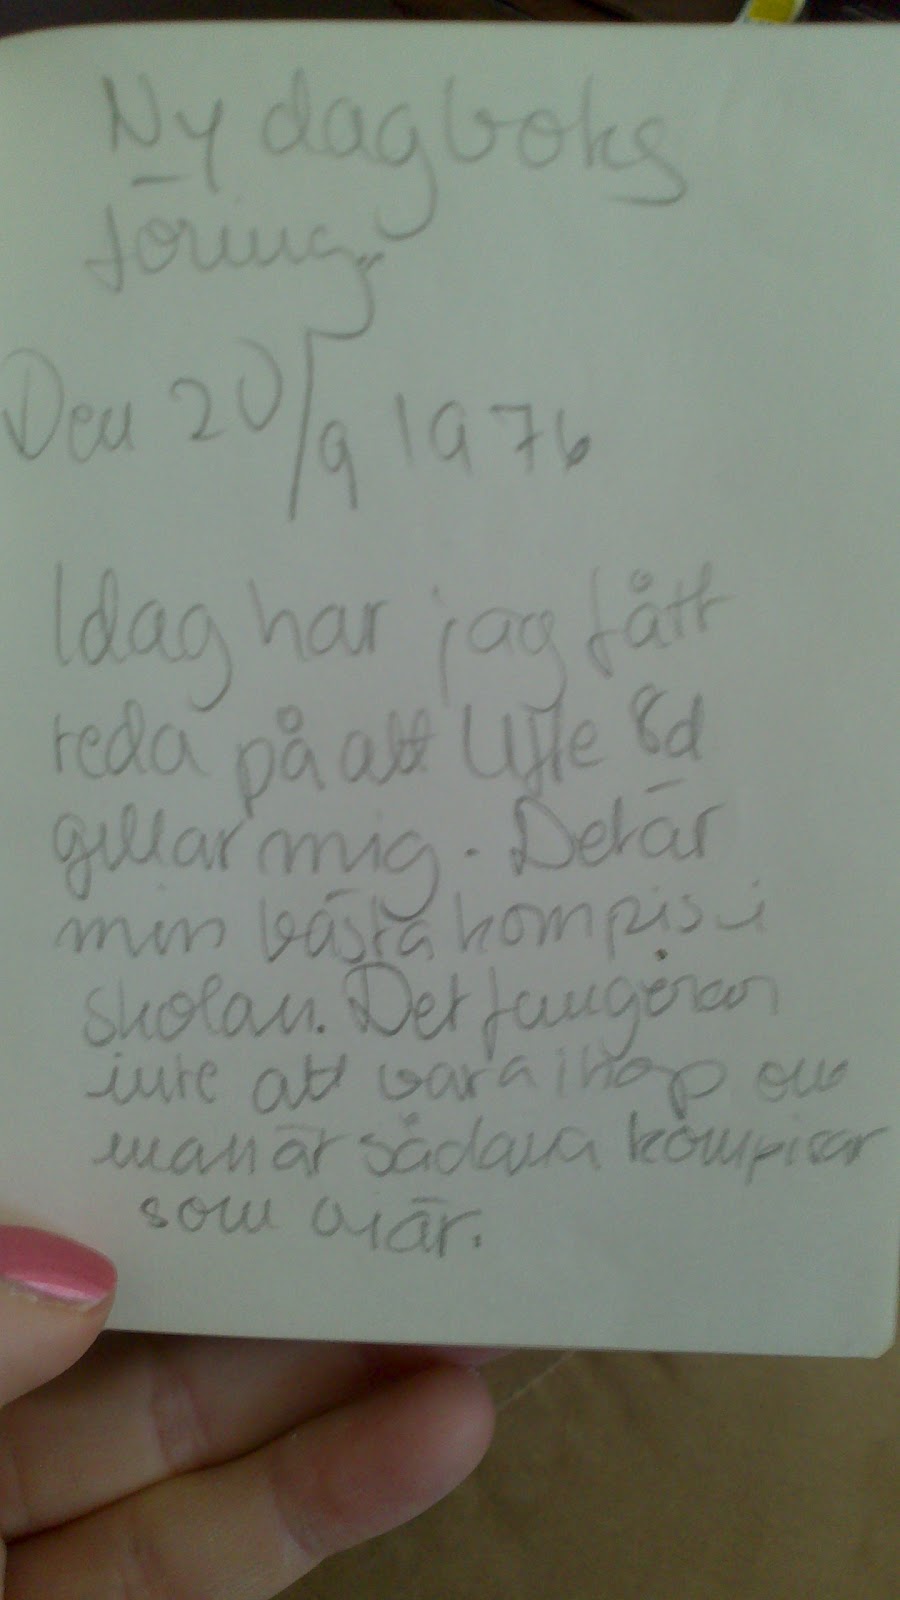 Ny dagboks
föring.
Den 20/9 1976
Idag har jag fått
reda på att Uffe 8d
gillar mig. Det är
min bästa kompis i
skolan. Det fungerar
inte att vara ihop om
man är sådana kompisar
som vi är.